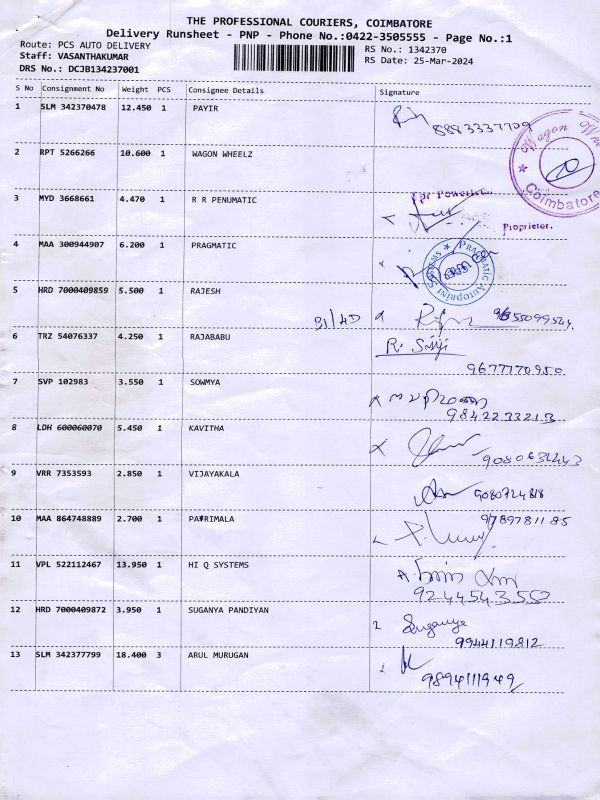 THE PROFESSIONAL COURIERS, COIMBATORE
Delivery Runsheet - PNP - Phone No.:0422-3505555 - Page No.:1
Route: PCS AUTO DELIVERY
Staff: VASANTHAKUMAR
DRS No.: DCJB134237001
RS No.: 1342370
RS Date: 25-Mar-2024
S No Consignment No Weight PCS Consignee Details Signature
1 SLM 342370478 12.450 1 PAYIR
8883337709
Wagon
Coimbatore
2 RPT 5266266 10.600 1 WAGON WHEELZ
3 MYD 3668661 4.470 1 R R PENUMATIC
Proprietor.
4 MAA 300944907 6.200 1 PRAGMATIC
PRAGMATIC Autoprint SYSTEMS
5 HRD 7000409859 5.500 1 RAJESH
31/4D
9655099524
6 TRZ 54076337 4.250 1 RAJABABU
9677770950
7 SVP 102983 3.550 1 SOWMYA
9842233213
8 LDH 600060070 5.450 1 KAVITHA
9 VRR 7353593 2.850 1 VIJAYAKALA
9080724818
10 MAA 864748889 2.700 1 PATRIMALA
9789781185
11 VPL 522112467 13.950 1 HI Q SYSTEMS
9244543550
12 HRD 7000409872 3.950 1 SUGANYA PANDIYAN
Suganya
9944119812
13 SLM 342377799 18.400 3 ARUL MURUGAN
9894111949